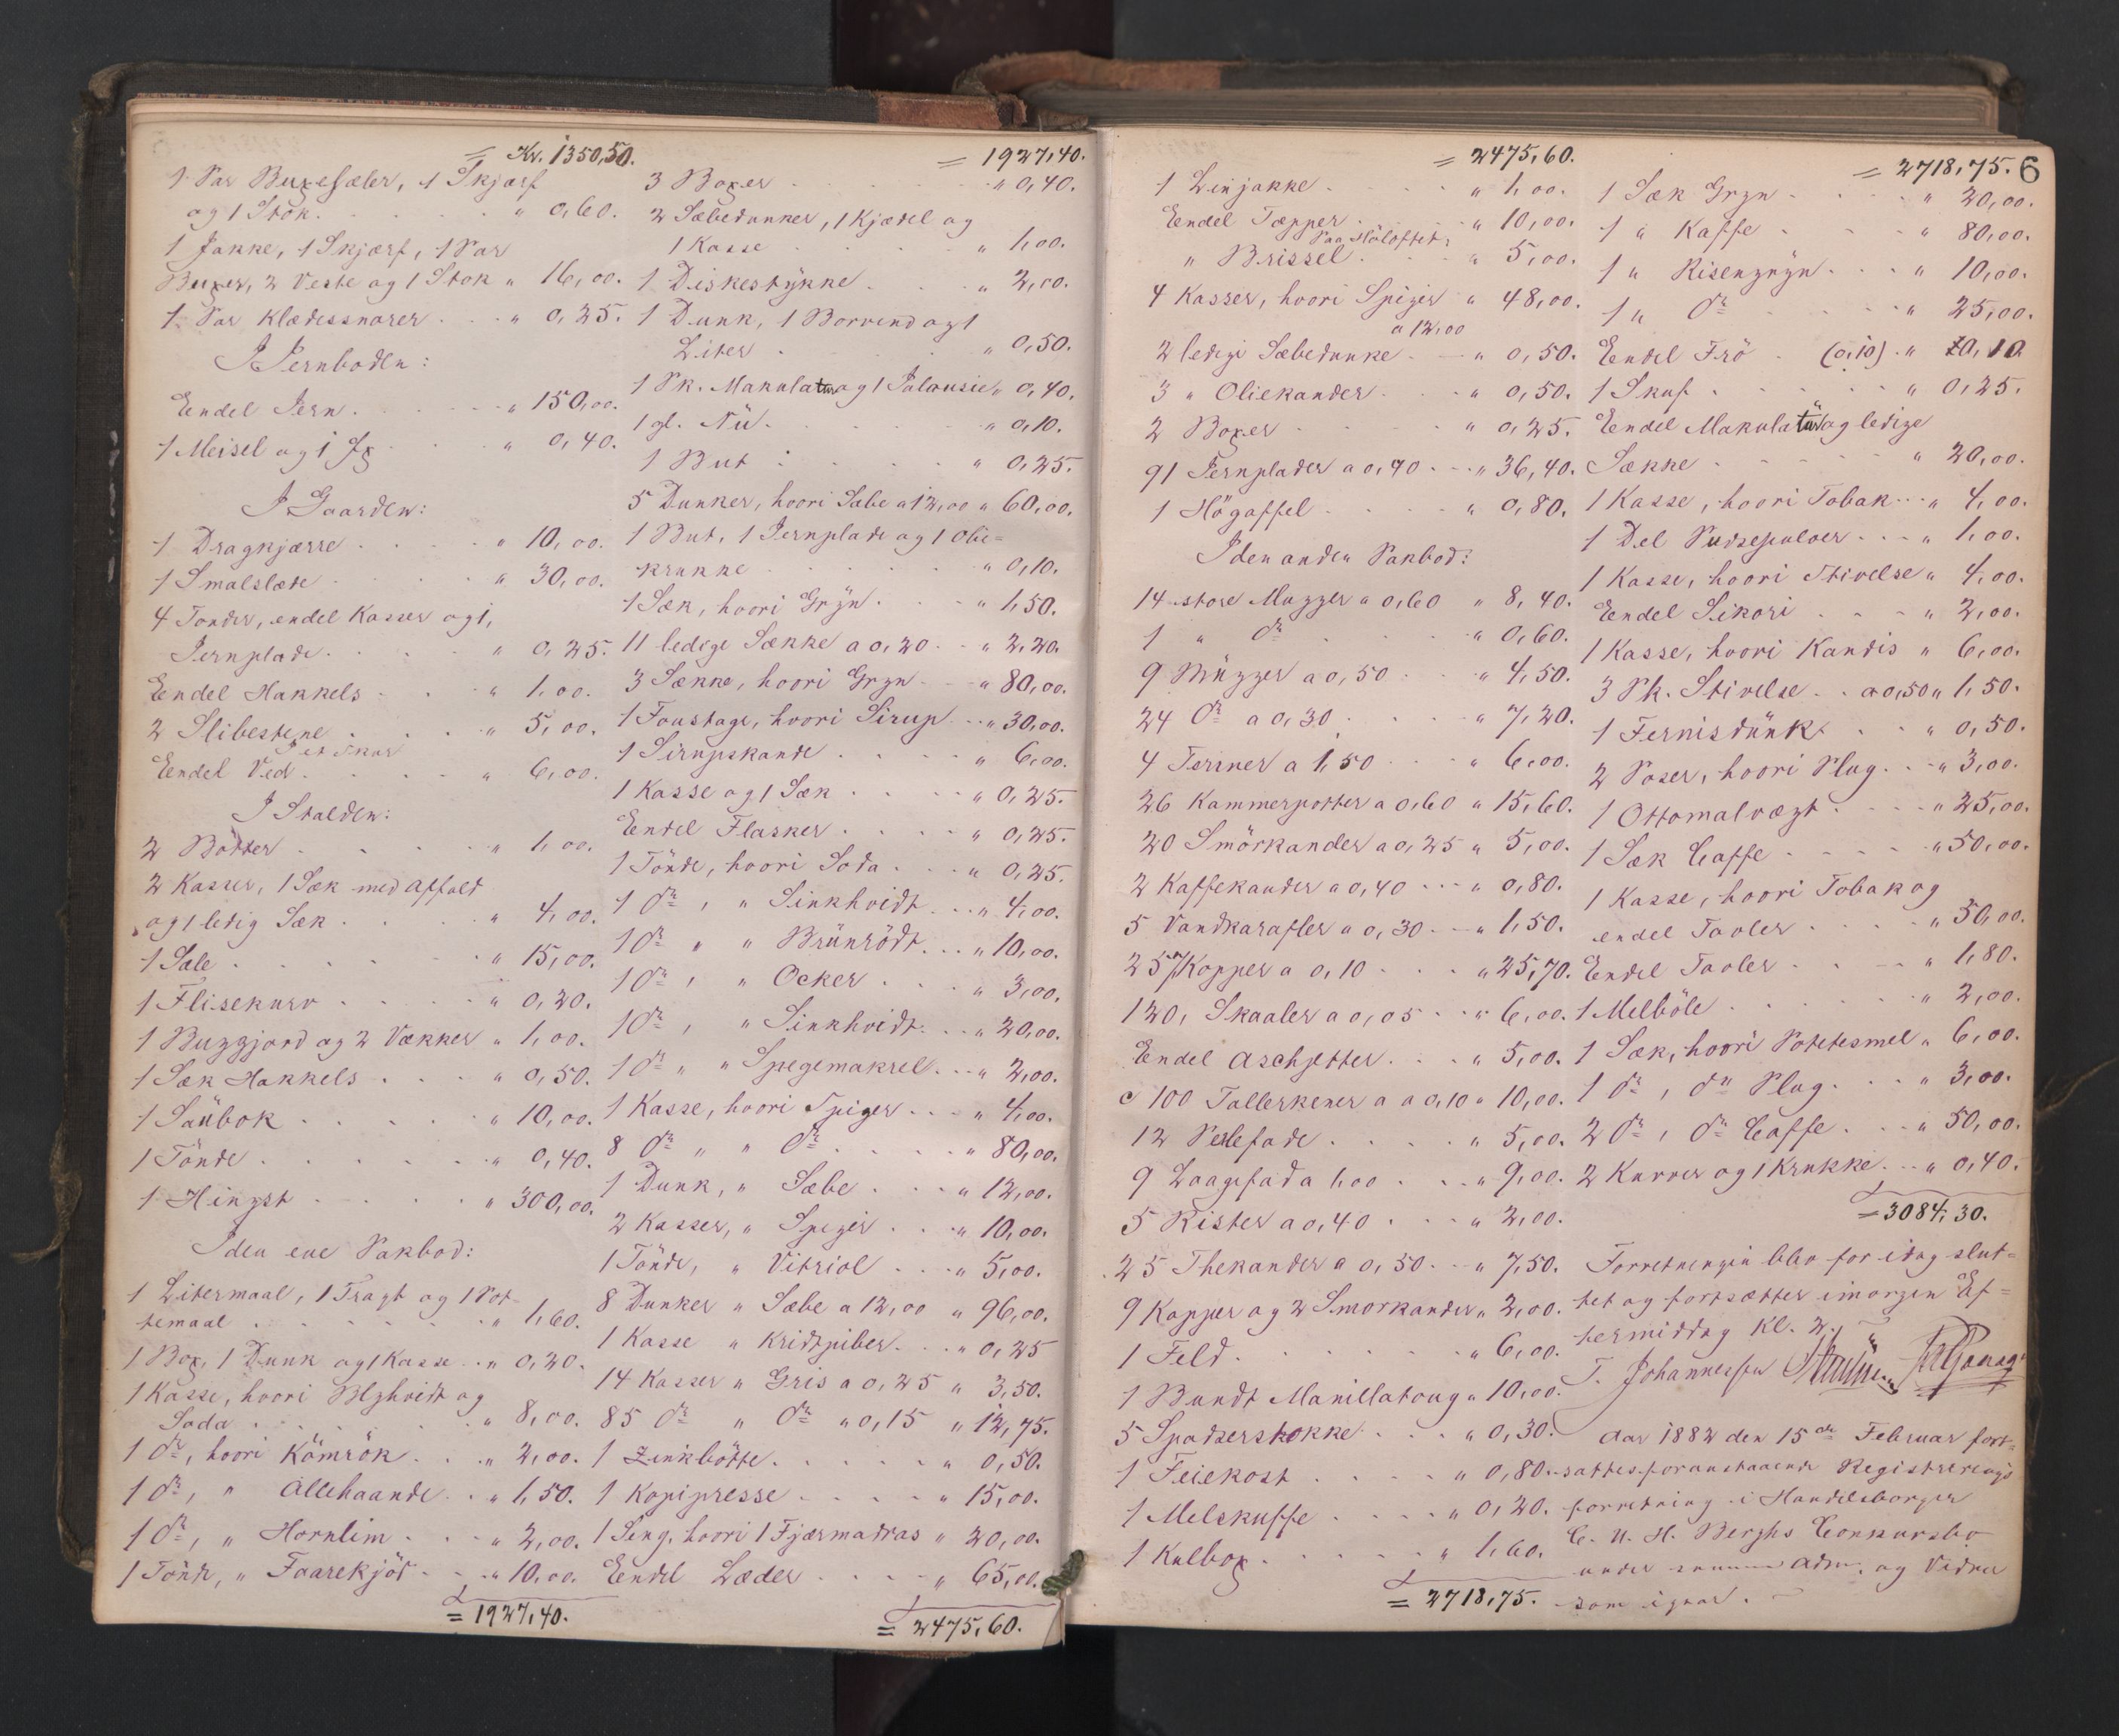 = Kr. 1350,50.
1 Par Buxesæler, 1 Skjærf
og 1 Stok. " 0,60.
1 Jakke, 1 Skjærf, 1 Par
Buxer, 2 Veste og 1 Stok " 16,00.
1 Par Klædessnorer " 0,25.
I Jernboden:
Endel Jern. " 150,00.
1 Meisel og 1 Øx " 0,40.
I Gaarden:
1 Dragkjærre " 10,00.
1 Smalslæde " 30,00.
4 Tønder, endel Kasser og 1,
Jernplade. " 0,25.
Eendel Hakkels " 1,00.
2 Slibestene " 5,00.
I et Skur
Eendel Ved. " 6,00.
I Stalden:
2 Bötter " 1,00.
2 Kasser, 1 Sæk med Affald
og 1 ledig Sæk " 4,00.
1 Sale " 15,00.
1 Flisekurv " 0,20.
1 Buggjord og 2 Dækker " 1,00.
1 Sæk Hakkels " 0,50.
1 Saübok " 10,00.
1 Tönde " 0,40.
1 Hingst " 300,00.
I den ene Pakbod:
1 Litermaal, 1 Tragt og 1 Pot-
temaal " 1,60.
1 Box, 1 Dunk og 1 Kasse " 0,20.
1 Kasse, hvori Blyhvidt og
Soda " 8,00.
1 do, hvori Kömrök " 2,00.
1 do, " Allehaande " 1,50.
1 do, " Hornlim " 2,00.
1 Tönde, " Faarekjöd " 10,00.
= 1927,40.
= 1927,40.
3 Boxer " 0,40.
2 Sæbedunker, 1 Kjædel og
1 Kasse " 1,00.
1 Diskestykke " 2,00.
1 Dunk, 1 Borvind og 1
Liter " 0,50.
1 Pk. Makulatur og 1 Jalousie " 0,40.
1 gl. Nü. " 0,10.
1 But " 0,25.
5 Dunker, hvori Sæbe a 12,00 " 60,00.
1 But, 1 Jernplade og 1 Olie=
krukke " 0,10.
1 Sæk, hvori Gryn " 1,50.
11 ledige Sække a 0,20 " 2,20.
3 Sække, hvori Gryn " 80,00.
1 Foustage, hvori Sirup " 30,00.
1 Sirupskande " 6,00.
1 Kasse og 1 Sæk " 0,25.
Endel Flasker " 0,25.
1 Tönde, hvori Soda " 0,25.
1 do, " Sinkhvidt " 4,00.
1 do " " Brünrödt " 10,00.
1 do, " Ocker " 3,00.
1 do, " Sinkhvidt " 20,00.
1 do " " Spegemakrel " 2,00.
1 Kasse, hvori Spiger " 4,00.
8 do " " do " 80,00.
1 Dunk, " Sæbe " 12,00.
2 Kasser, " Speger " 10,00.
1 Tönde, " Vitriol " 5,00.
8 Dunker " Sæbe a 12,00 " 96,00.
1 Kasse " Kridtpiber " 0,25
14 Kasser " Gris a 0,25 " 3,50.
85 do " do " 0,15 " 12,75.
1 Zinkbötte " 0,50.
1 Kopipresse " 15,00.
1 Seng, hvori 1 Fjærmadras " 20,00.
Eendel Læder " 65,00.
= 2475,60.
= 2475,60.
1 Linjakke " 1,00.
Eendel Tæpper " 10,00.
Paa Höloftet:
" Brissel " 5,00.
4 Kasser, hvori Spiger " 48,00.
a 12,00
2 ledige Sæbedunke " 0,50.
3 " Oliekander " 0,50.
2 Boxer " 0,25.
91 Jernplader a 0,40 " 36,40.
1 Högaffel " 0,80.
I den anden Pakbod:
14 store Mugger a 0,60 " 8,40.
1 " do " 0,60.
9 Mügger a 0,50 " 4,50.
24 do a 0,30 " 7,20.
4 Terriner a 1,50 " 6,00.
26 Kammerpotter a 0,60 " 15,60.
20 Smörkander a 0,25 " 5,00.
2 Kaffekander a 0,40 " 0,80.
5 Vandkarafler a 0,30 " 1,50.
257 Kopper a 0,10 " 25,70.
120, Skaaler a 0,05 " 6,00.
Endel Aschjetter " 5,00.
c 100 Tallerkener a a 0,10 " 10,00.
12 Pælefade " 5,00.
9 Laagefad a 1,00 " 9,00.
5 Rister a 0,40 " 2,00.
25 Thekander a 0,50 " 7,50.
9 Kopper og 2 Smorkander " 2,00.
1 Feld " 6,00.
1 Bundt Manillatoug " 10,00.
5 Spadserstokke " 0,30.
1 Feiekost " 0,80.
1 Melskuffe " 0,20.
1 Kulbox " 1,60.
= 2718,75.
= 2718,75. 6
1 Sæk Gryn " 20,00.
1 " Kaffe " 80,00.
1 " Risengryn " 10,00.
1 " do " 25,00.
Eendel Frö (0,10) " 10,10
1 Skuf " 0,25.
Eendel Makulatür og ledige
Sække " 20,00.
1 Kasse, hvori Tobak " 4,00.
1 Del Pudsepulver " 1,00.
1 Kasse, hvori Stivelse " 4,00.
Eendel Sikori " 2,00.
1 Kasse, hvori Kandis " 6,00.
3 Pk. Stivelse a 0,50 " 1,50.
1 Fernisdünk " 0,50.
2 Poser, hvori Plug " 3,00.
1 Ottomalvægt " 25,00.
1 Sæk Caffe " 50,00.
1 Kasse, hvori Tobak og
endel Tavler " 50,00.
Endel Tavler " 1,80.
1 Melböle " 2,00.
1 Sæk, hvori Potetesmel " 6,00.
1 do, do Plug " 3,00.
2 do, do Caffe " 50,00.
2 Kurver og 1 Krukke " 0,40.
= 3084,30.
Forretningen blev for idag slut=
tet og fortsætter imorgen Ef=
termiddag Kl. 2.
T. Johannessen
Aar 1882 den 15de Februar fort-
sattes foranstaaende Registrerings
forretning i Handelsborger
C. U. H. Berghs Conkursbo
under samme Adm. og Vidner
som igaar.